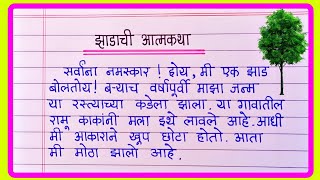 झाडाची आत्मकथा
सर्वांना नमस्कार ! होय, मी एक झाड
बोलतोय! बऱ्याच वर्षापूर्वी माझा जन्म
या रस्त्याच्या कडेला झाला. या गावातील
रामू काकांनी मला इथे लावले आहे. आधी
मी आकाराने खूप छोटा होतो. आता
मी मोठा झालो आहे.